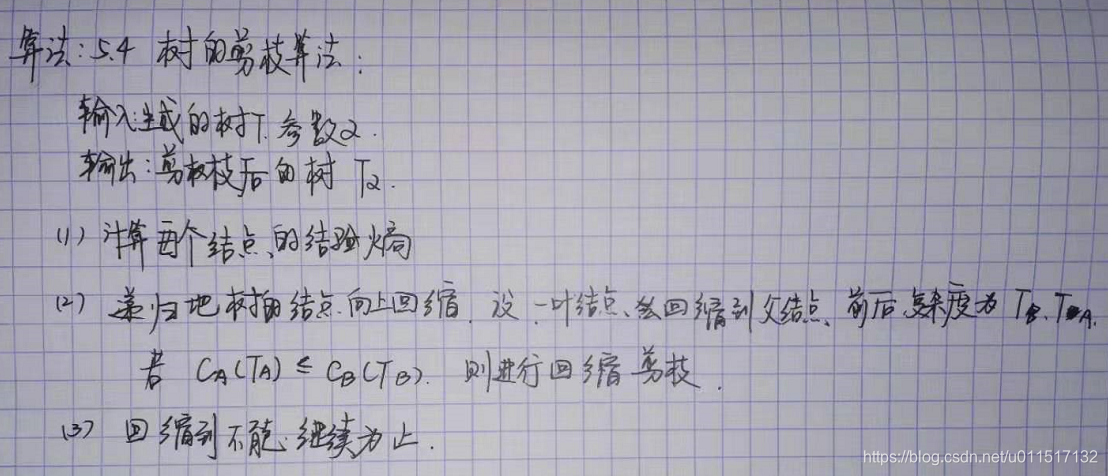 算法:5.4 树的剪枝算法:
输入:生成的树T.参数α.
输出:剪枝后的树 Tα.
(1) 计算每个结点的经验熵
(2) 递归地树的结点向上回缩.设一叶结点回缩到父结点前后复杂度为 TB.TA.
若 CA(TA) ≤ CB(TB). 则进行回缩剪枝.
(3) 回缩到不能继续为止.
https://blog.csdn.net/u011517132